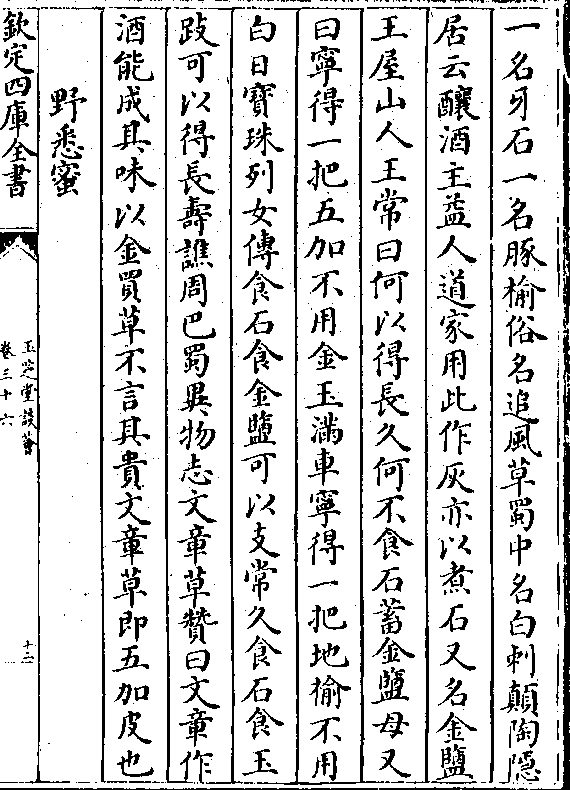 一名牙石一名豚榆俗名追風草蜀中名白刺顛陶隱
居云釀酒主益人道家用此作灰亦以煮石又名金鹽
王屋山人王常曰何以得長久何不食石蓄金鹽母又
曰寧得一把五加不用金玉滿車寧得一把地榆不用
白日寶珠列女傳食石食金鹽可以支常久食石食玉
跂可以得長壽譙周巴蜀異物志文章草贊曰文章作
酒能成其味以金買草不言其貴文章草即五加皮也
野悉蜜
欽定四庫全書
玉芝堂談薈
卷三十六
十二